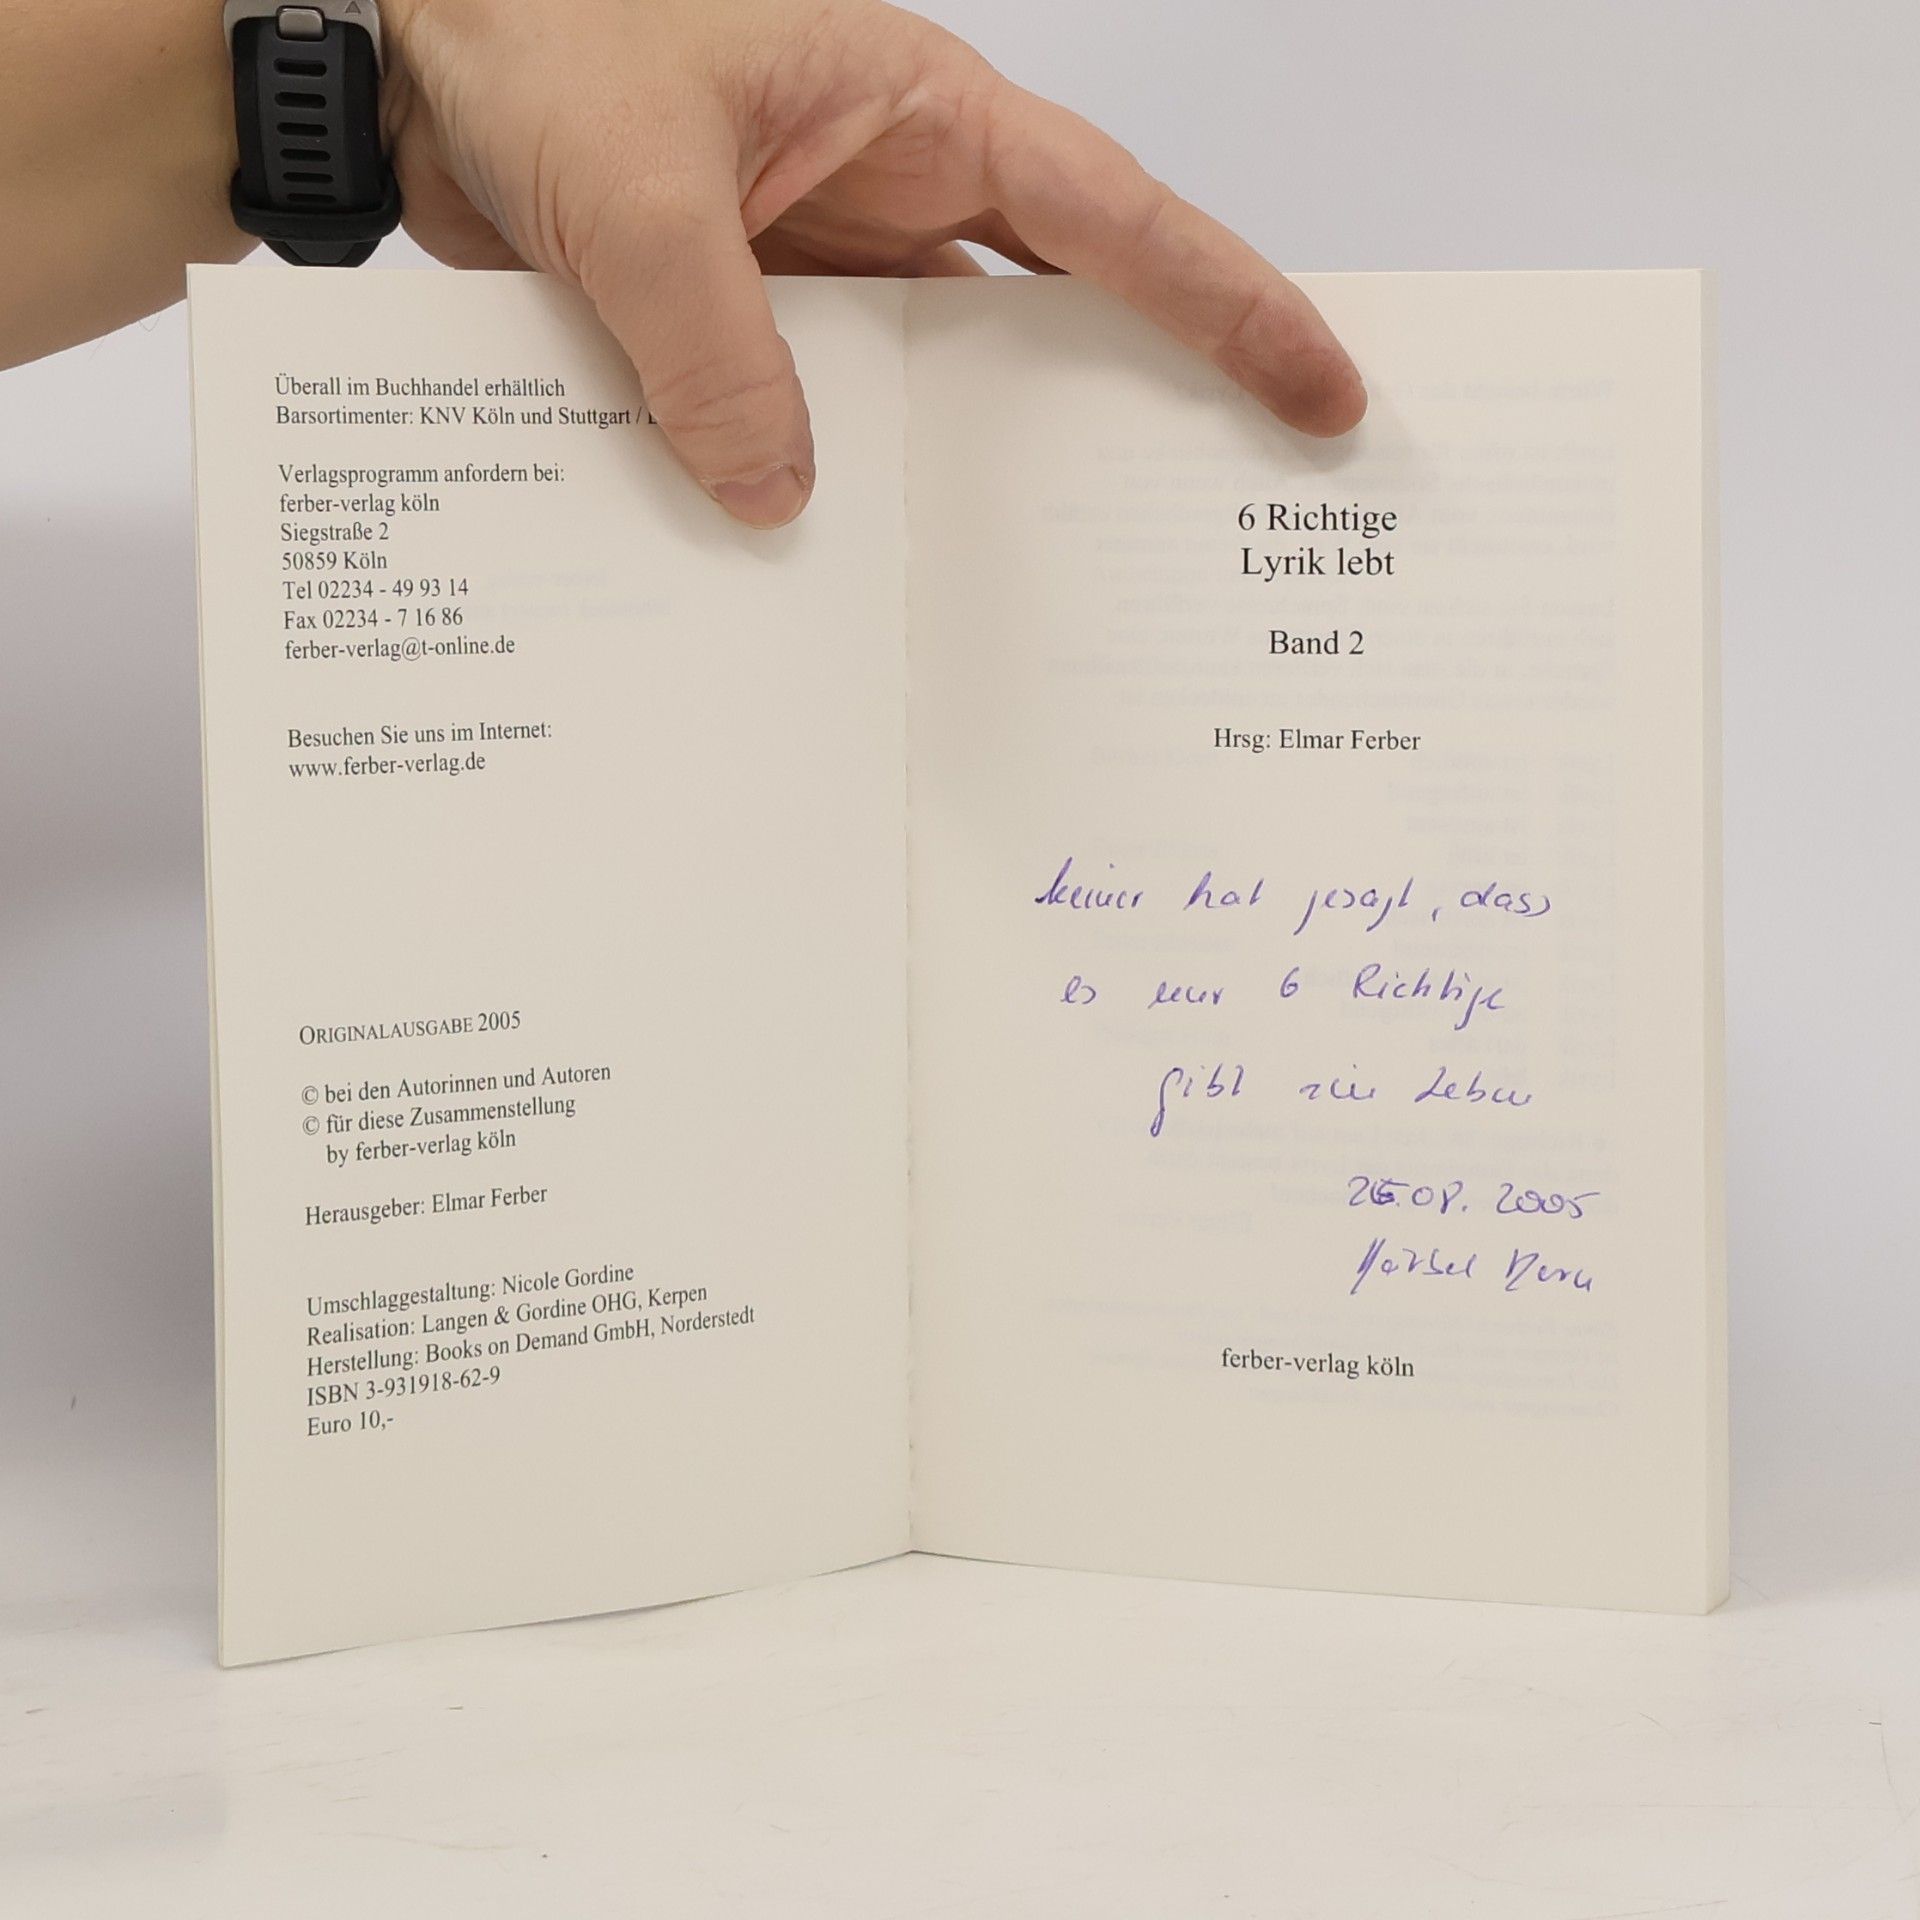 Überall im Buchhandel erhältlich
Barsortimenter: KNV Köln und Stuttgart /
Verlagsprogramm anfordern bei:
ferber-verlag köln
Siegstraße 2
50859 Köln
Tel 02234 - 49 93 14
Fax 02234 - 7 16 86
ferber-verlag@t-online.de
Besuchen Sie uns im Internet:
www.ferber-verlag.de
ORIGINALAUSGABE 2005
© bei den Autorinnen und Autoren
© für diese Zusammenstellung
by ferber-verlag köln
Herausgeber: Elmar Ferber
Umschlaggestaltung: Nicole Gordine
Realisation: Langen & Gordine OHG, Kerpen
Herstellung: Books on Demand GmbH, Norderstedt
ISBN 3-931918-62-9
Euro 10,-
6 Richtige
Lyrik lebt
Band 2
Hrsg: Elmar Ferber
keiner hat gesagt, dass
es nur 6 Richtige
gibt im Leben
26.08.2005
ferber-verlag köln